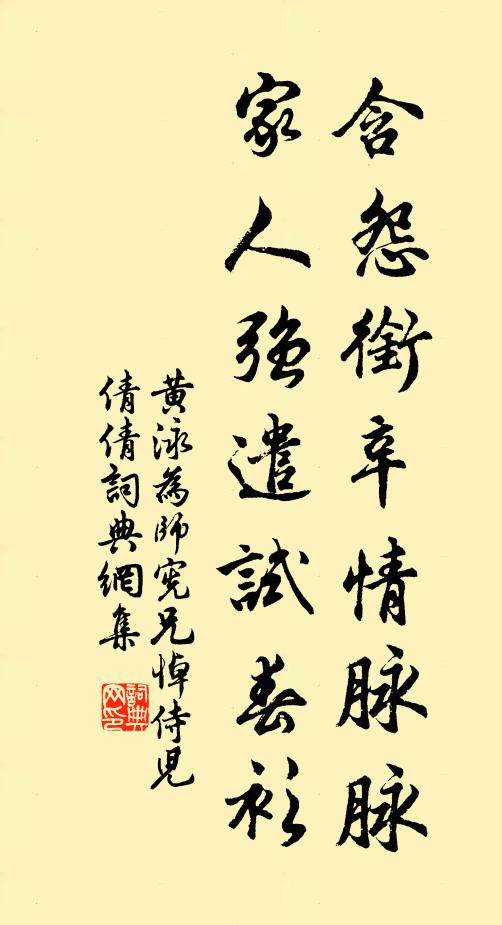 含怨銜辛情脉脉
家人強遣試春衫
黄泳為師憲兄悼侍児
倩倩詞典網集
詞典网印